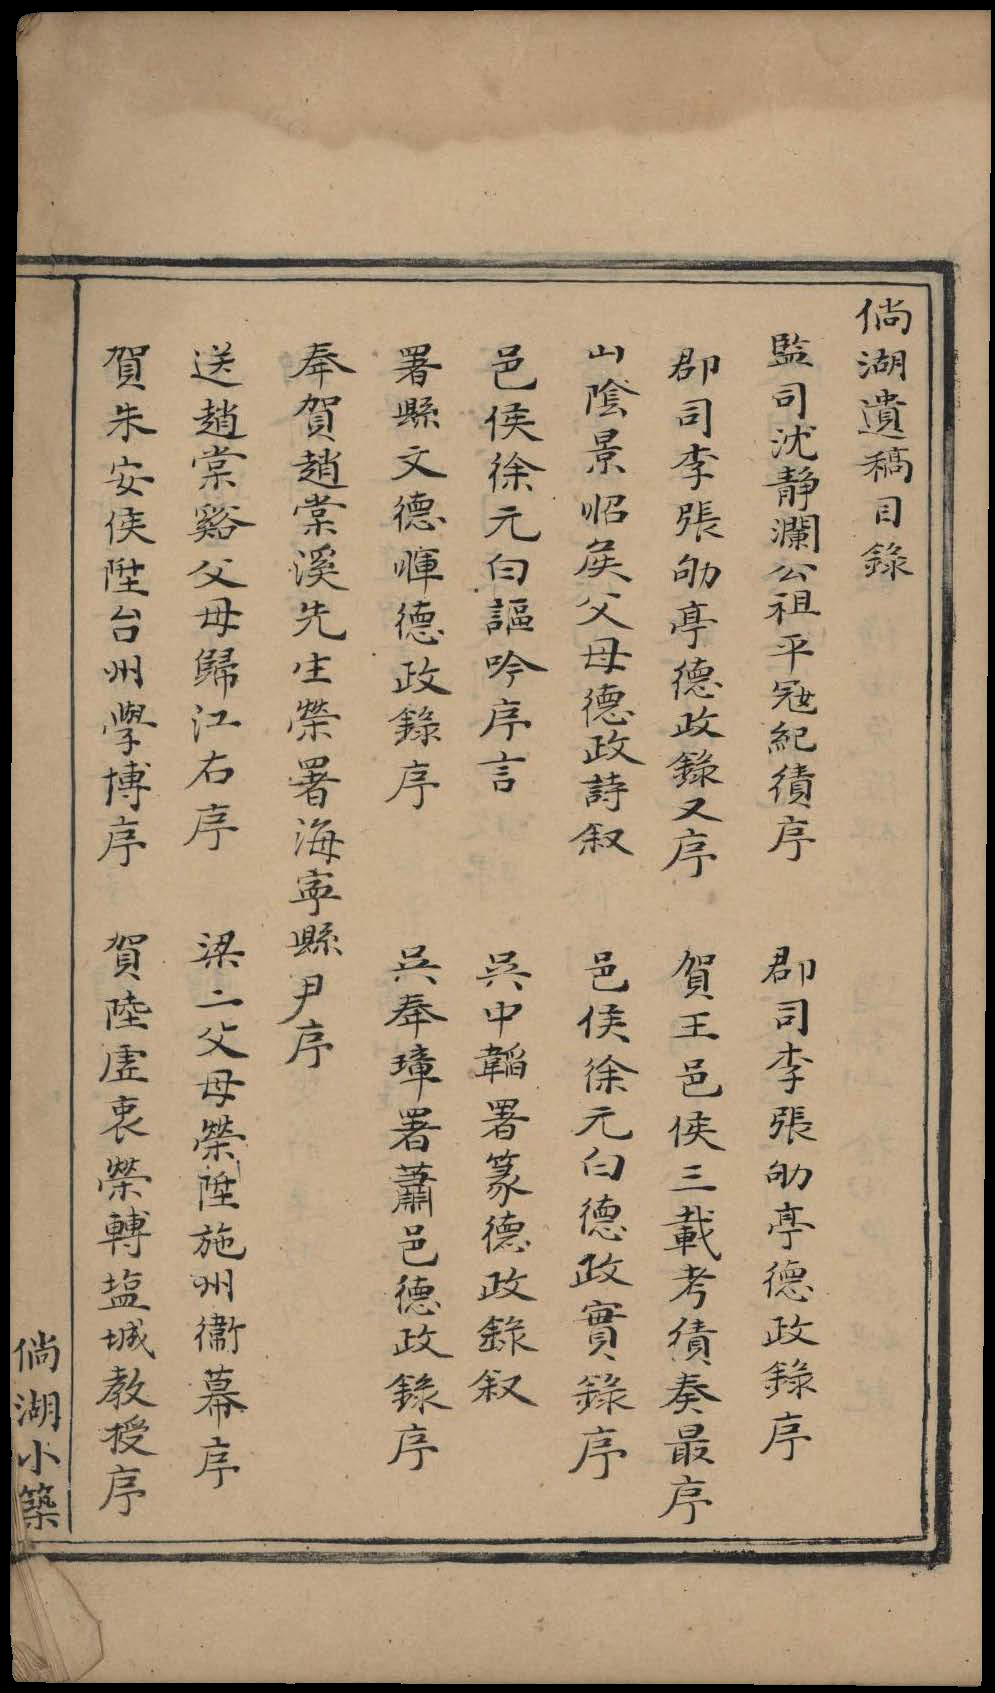 倘湖遺稿目錄
監司沈靜瀾公祖平冦紀績序　郡司李張劬亭德政錄序
郡司李張劬亭德政錄又序　賀王邑侯三載考績奏最序
山陰景昭矦父母德政詩叙　邑侯徐元白德政實錄序
邑侯徐元白謳吟序言　吳中韜署篆德政錄叙
署縣文德暉德政錄序　吳奉璋署蕭邑德政錄序
奉賀趙棠溪先生榮署海寧縣尹序
送趙棠谿父母歸江右序　梁二父母榮陞施州衞幕序
賀朱安侯陞台州學博序　賀陸虛衷榮轉塩城教授序
倘湖小築